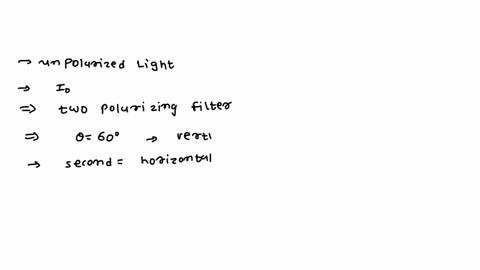 → unpolarized Light
→ I₀
⇒ two polarizing filter
⇒ θ = 60° → verti
→ second = horizontal